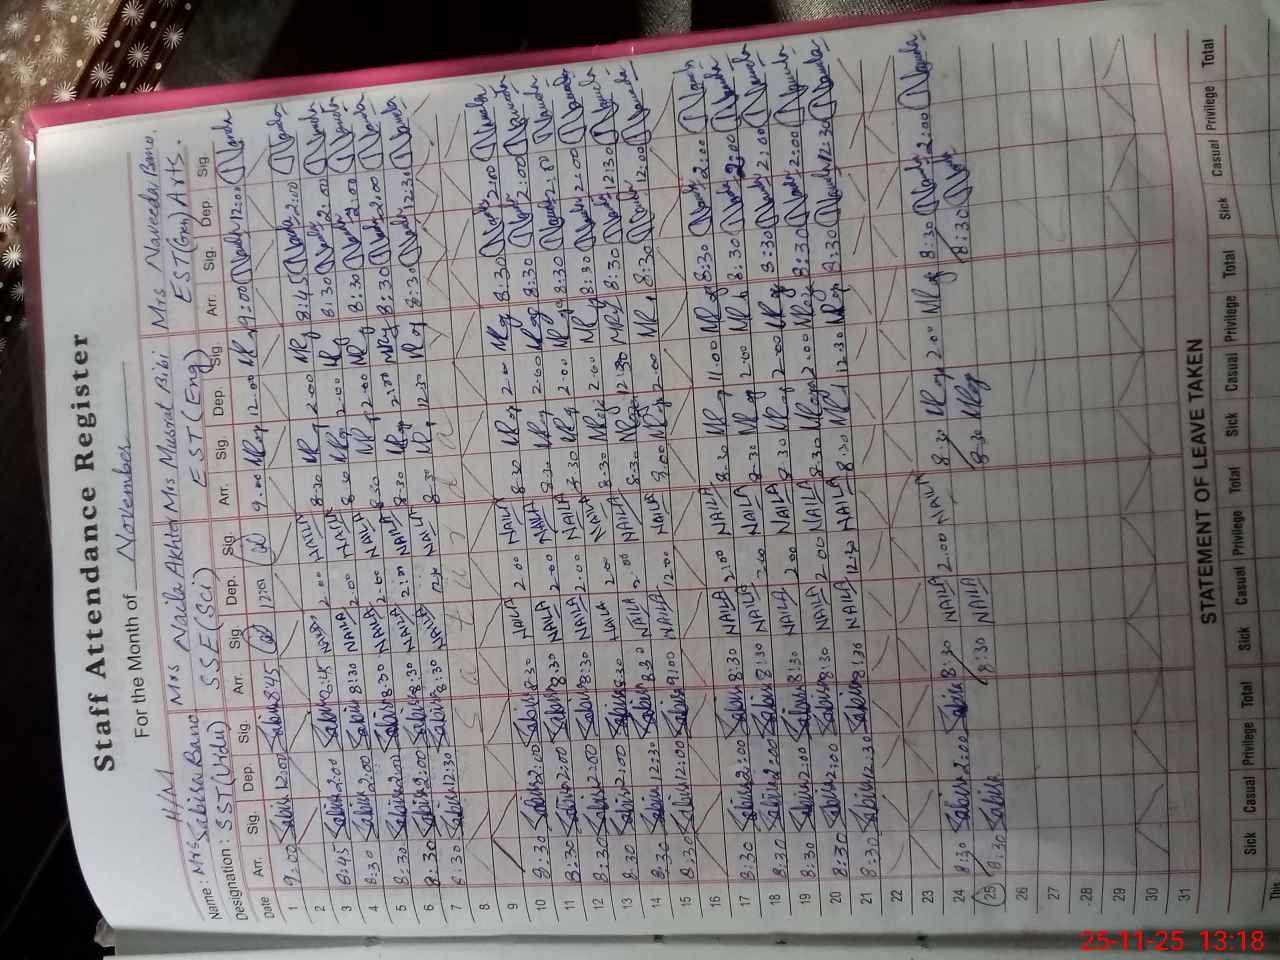 Staff Attendance Register
For the Month of November
H/M
Name : Mrs Sabira Bano Mrs Naila Akhtar Mrs Musrat Bibi Mrs Naveeda Bano.
Designation : SST (Urdu) SSE (Sci) EST (Eng) EST (Gen) Arts.
Date Arr. Sig. Dep. Sig. Arr. Sig. Dep. Sig. Arr. Sig. Dep. Sig. Arr. Sig. Dep. Sig.
1 9:00 Sabira 12:00 Sabira 8:45 12:00 9.00 12.00 9:00 Naveeda 12:00 Naveeda
2
3 8:45 Sabira 2:00 Sabira 8:45 NAILA 2.00 NAILA 8.30 2.00 8:45 Naveeda 2:00 Naveeda
4 8:30 Sabira 2:00 Sabira 8:30 NAILA 2.00 NAILA 8.30 2.00 8:30 Naveeda 2:00 Naveeda
5 8:30 Sabira 2:00 Sabira 8:30 NAILA 2.00 NAILA 8.30 2.00 8:30 Naveeda 2:00 Naveeda
6 8:30 Sabira 2:00 Sabira 8:30 NAILA 2:00 NAILA 8.30 2:00 8:30 Naveeda 2:00 Naveeda
7 8:30 Sabira 12:30 Sabira 8:30 NAILA 12:30 NAILA 8.30 12.30 8:30 Naveeda 12:30 Naveeda
8
9
10 8:30 Sabira 2:00 Sabira 8.30 NAILA 2.00 NAILA 8.30 2.00 8:30 Naveeda 2:00 Naveeda
11 8:30 Sabira 2:00 Sabira 8.30 NAILA 2.00 NAILA 8.30 2.00 8:30 Naveeda 2:00 Naveeda
12 8:30 Sabira 2:00 Sabira 8:30 NAILA 2.00 NAILA 8.30 2.00 8:30 Naveeda 2:00 Naveeda
13 8:30 Sabira 2:00 Sabira 8.30 NAILA 2.00 NAILA 8.30 2.00 8:30 Naveeda 2:00 Naveeda
14 8:30 Sabira 12:30 Sabira 8.30 NAILA 2.00 NAILA 8.30 12:30 8:30 Naveeda 12:30 Naveeda
15 8:30 Sabira 12:00 Sabira 9:00 NAILA 12.00 NAILA 9.00 12.00 8:30 Naveeda 12:00 Naveeda
16
17 8:30 Sabira 2:00 Sabira 8:30 NAILA 2:00 NAILA 8.30 11.00 8:30 Naveeda 2:00 Naveeda
18 8:30 Sabira 2:00 Sabira 8:30 NAILA 2.00 NAILA 8.30 2.00 8:30 Naveeda 2:00 Naveeda
19 8:30 Sabira 2:00 Sabira 8:30 NAILA 2.00 NAILA 8.30 2.00 8:30 Naveeda 2:00 Naveeda
20 8:30 Sabira 2:00 Sabira 8:30 NAILA 2.00 NAILA 8.30 2.00 8:30 Naveeda 2:00 Naveeda
21 8:30 Sabira 12:30 Sabira 8:30 NAILA 12:30 NAILA 8.30 12.30 8:30 Naveeda 12:30 Naveeda
22
23
24 8:30 Sabira 2:00 Sabira 8:30 NAILA 2.00 NAILA 8.30 2.00 8:30 Naveeda 2:00 Naveeda
25 8:30 Sabira 8:30 NAILA 8:30 8:30 Naveeda
26
27
28
29
30
31
STATEMENT OF LEAVE TAKEN
Sick Casual Privilege Total Sick Casual Privilege Total Sick Casual Privilege Total Sick Casual Privilege Total
This
25-11-25 13:18